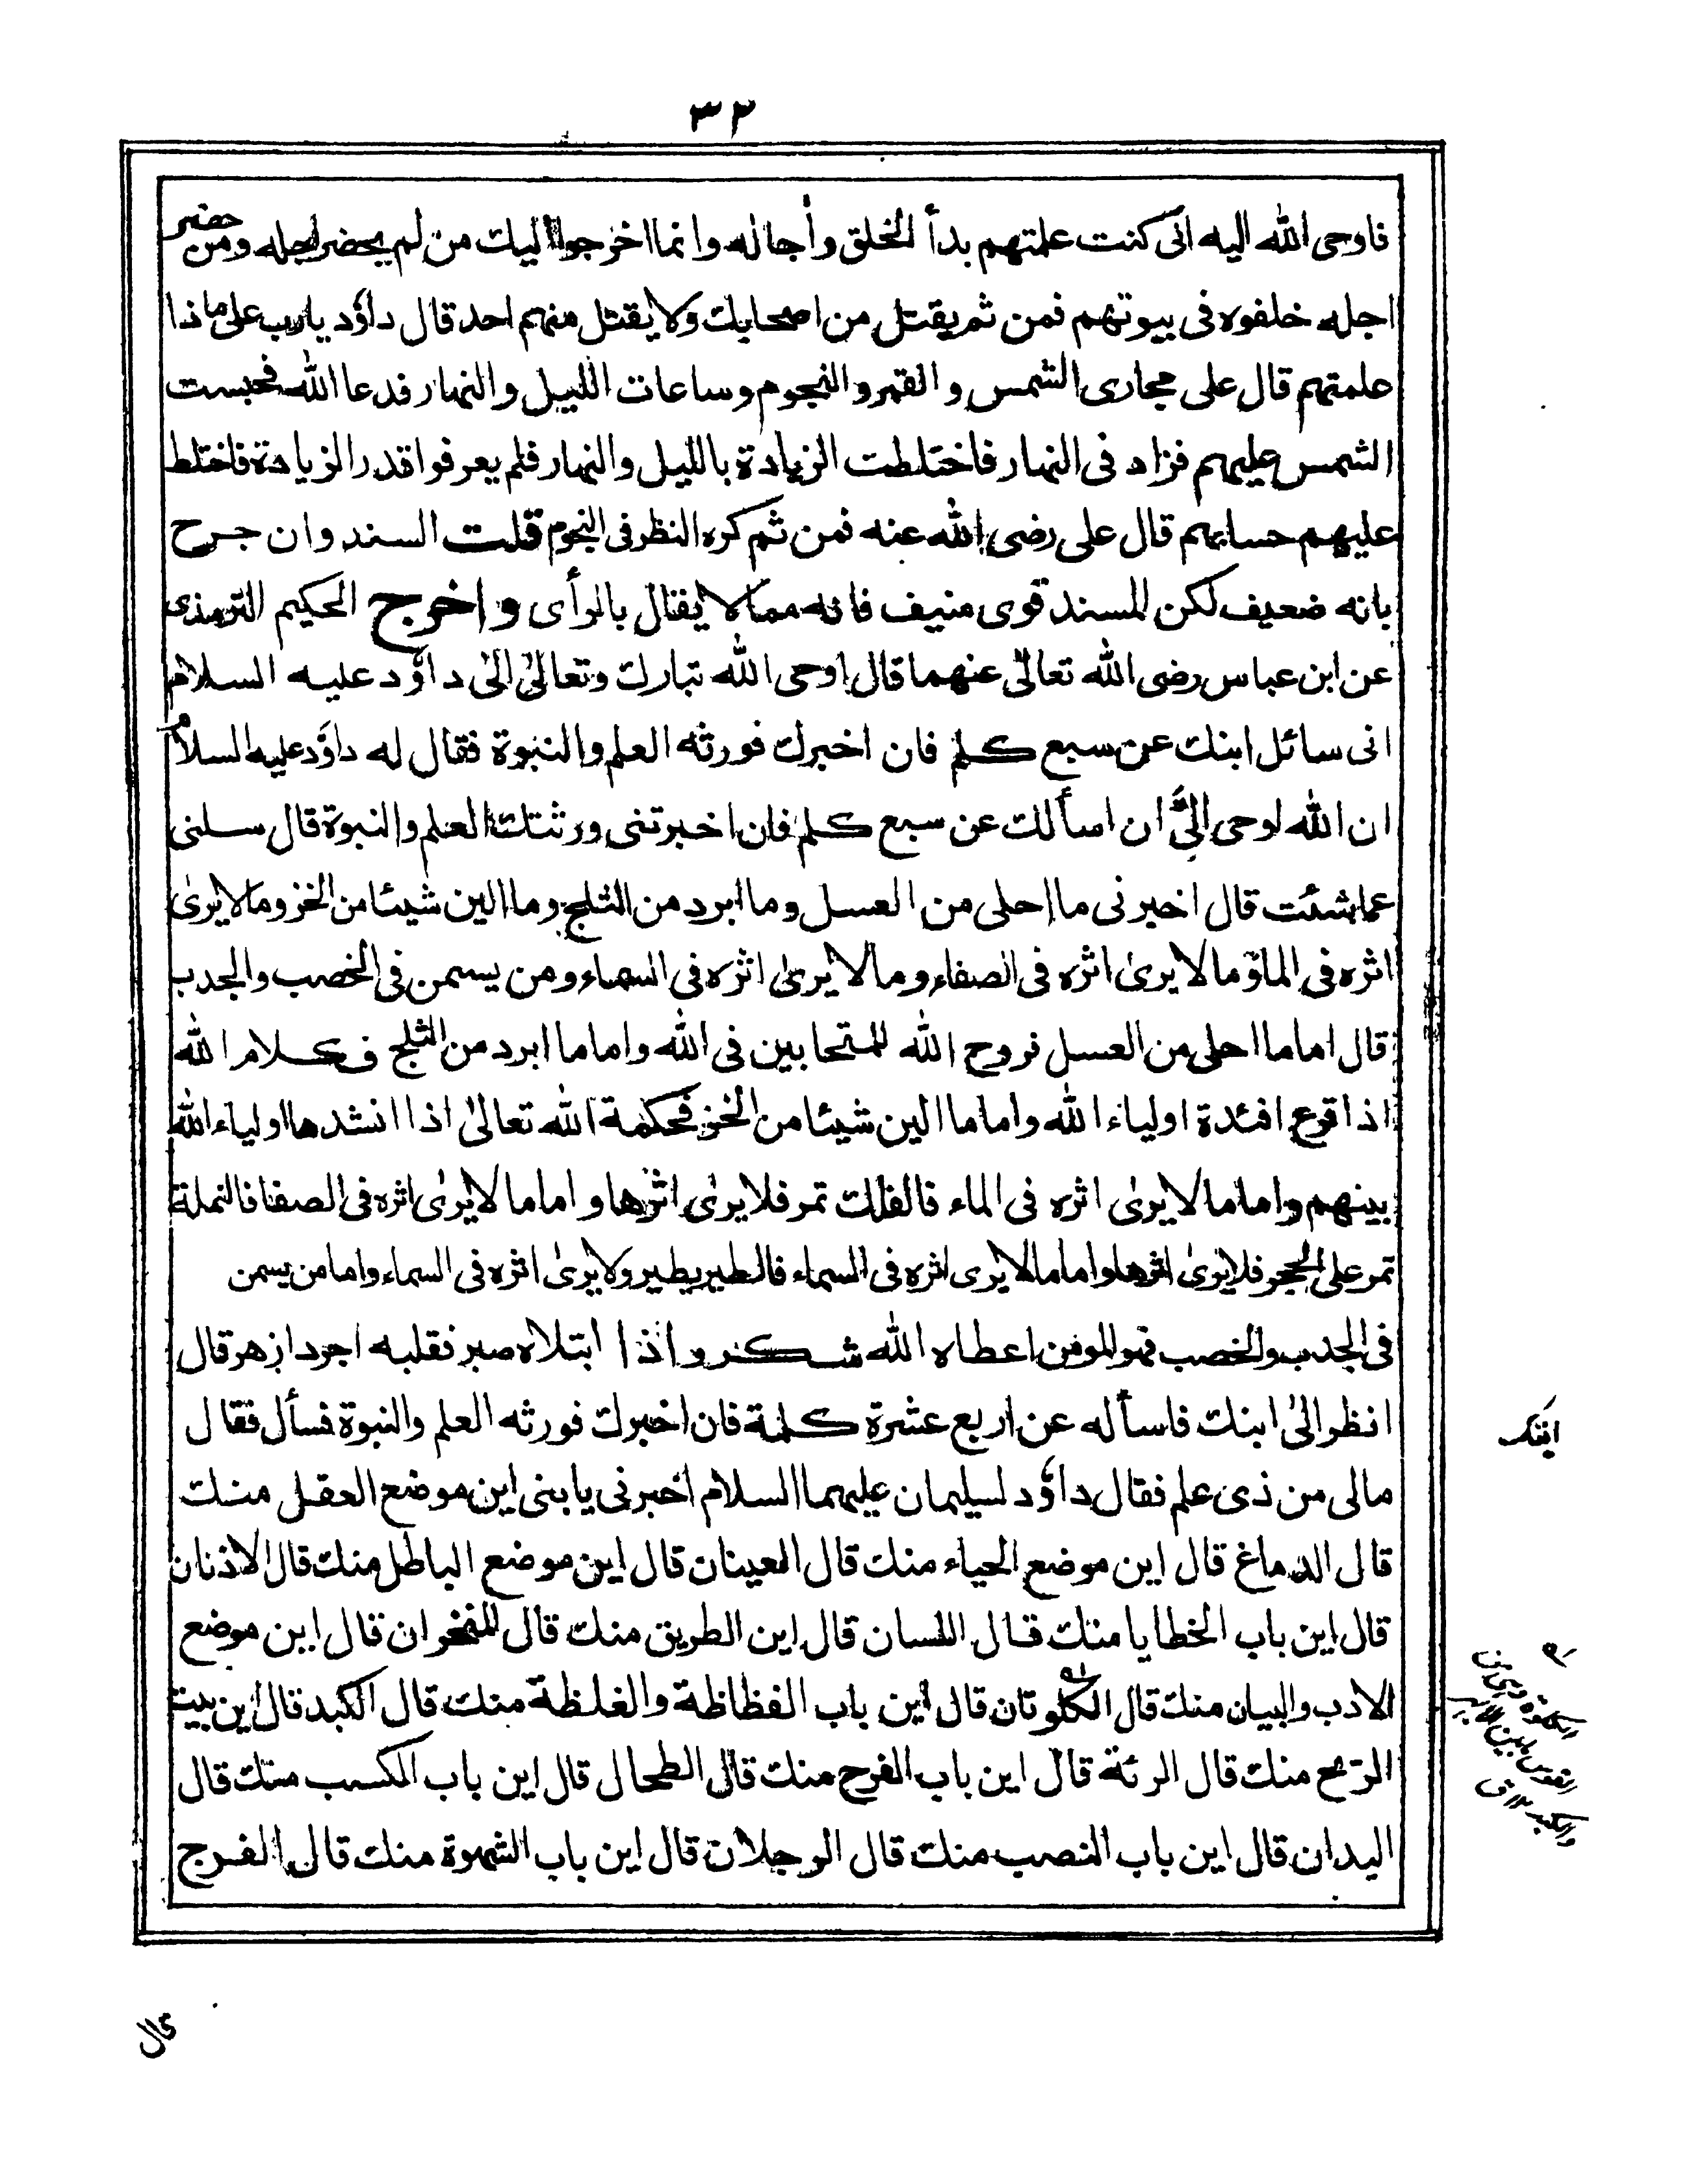 ٣٢
فاوحى الله اليه انى كنت علمتهم بدأ الخلق وأجاله وانما اخرجوا اليك من لم يحضر اجله ومن حضر
اجله خلفوه فى بيوتهم فمن ثم يقتل من اصحابك ولا يقتل منهم احد قال داؤد يارب على ماذا
علمتهم قال على مجارى الشمس والقمر والنجوم وساعات الليل والنهار فدعا الله فحبست
الشمس عليهم فزاد فى النهار فاختلطت الزيادة بالليل والنهار فلم يعرفوا قدر الزيادة فاختلط
عليهم حسابهم قال على رضى الله عنه فمن ثم كره النظر فى النجوم قلت السند وان جرح
بانه ضعيف لكن المسند قوى منيف فانه مما لا يقال بالرأى واخرج الحكيم الترمذى
عن ابن عباس رضى الله تعالى عنهما قال اوحى الله تبارك وتعالى الى داؤد عليه السلام
انى سائل ابنك عن سبع كلم فان اخبرك فورثه العلم والنبوة فقال له داؤد عليه السلام
ان الله اوحى الىّ ان اسألك عن سبع كلم فان اخبرتنى ورثتك العلم والنبوة قال سلنى
عما شئت قال اخبرنى ما احلى من العسل وما ابرد من الثلج وما الين شيئا من الخز وما لا يرى
اثره فى الماؤ ما لا يرى اثره فى الصفاء وما لا يرى اثره فى السماء ومن يسمن فى الخصب والجدب
قال اما ما احلى من العسل فروح الله للمتحابين فى الله واما ما ابرد من الثلج فكلام الله
اذا قرع افئدة اولياء الله واما ما الين شيئا من الخز فحكمة الله تعالى اذا انشدها اولياء الله
بينهم واما ما لا يرى اثره فى الماء فالفلك تمر فلا يرى اثرها واما ما لا يرى اثره فى الصفا فالنملة
تمر على الحجر فلا يرى اثرها واما ما لا يرى اثره فى السماء فالطير يطير ولا يرى اثره فى السماء واما من يسمن
فى الجدب والخصب فهو المؤمن اعطاه الله شكر واذا ابتلاه صبر فقلبه اجرد ازهر قال
انظر الى ابنك فاسأله عن اربع عشرة كلمة فان اخبرك فورثه العلم والنبوة فسأل فقال
مالى من ذى علم فقال داؤد لسليمان عليهما السلام اخبرنى يا بنى اين موضع العقل منك
قال الدماغ قال اين موضع الحياء منك قال العينان قال اين موضع الباطل منك قال الاذنان
قال اين باب الخطايا منك قال اللسان قال اين الطريق منك قال المنخران قال اين موضع
الادب والبيان منك قال الكلوتان قال اين باب الفظاظة والغلظة منك قال الكبد قال اين بيت
الريح منك قال الرئة قال اين باب الفرح منك قال الطحال قال اين باب المكسب منك قال
اليدان قال اين باب النصب منك قال الرجلان قال اين باب الشهوة منك قال الفرج
قال